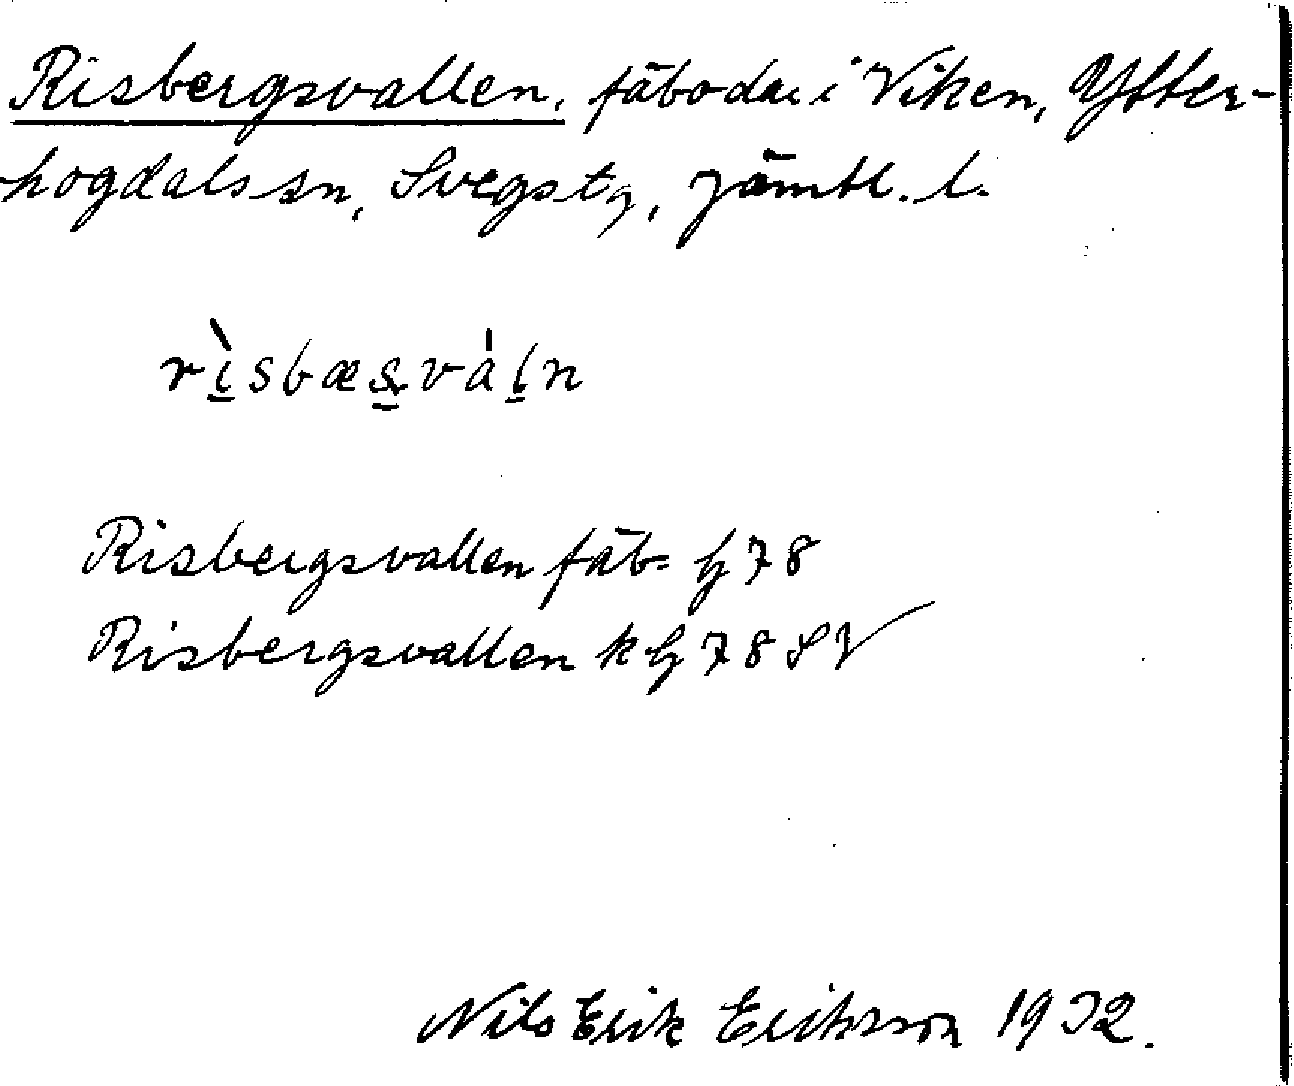 Risbergsvallen, fäbodar i Viken, Ytter-
hogdals sn, Svegs tg, Jämtl. l.
rìsbæsvàln
Risbergsvallen fäb. h 78
Risbergsvallen k h 78 SV
Nils Erik Eriksson 1932.